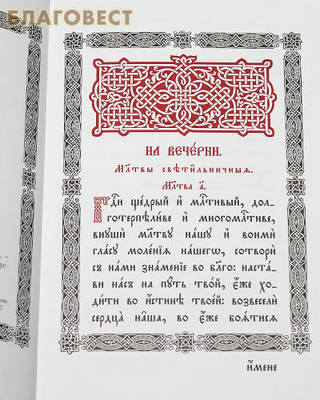 БЛАГОВЕСТ
НА ВЕЧЕ́РНИ.
Мл҃твы свѣти́льничныѧ.
Мл҃тва а҃.
Гдⷭ҇и ще́дрый и҆ млⷭ҇тивый, дол-
готерпѣли́ве и҆ многомлⷭ҇тиве,
внꙋшѝ мл҃твꙋ на́шꙋ и҆ вонмѝ
гла́сꙋ моле́нїѧ на́шегѡ, сотворѝ
съ на́ми зна́менїе во бл҃го: наста́-
ви на́съ на пꙋ́ть тво́й, є҆́же хо-
ди́ти во и҆́стинѣ твое́й: возвеселѝ
сердца̀ на̑ша, во є҆́же боѧ́тисѧ
и҆́мене